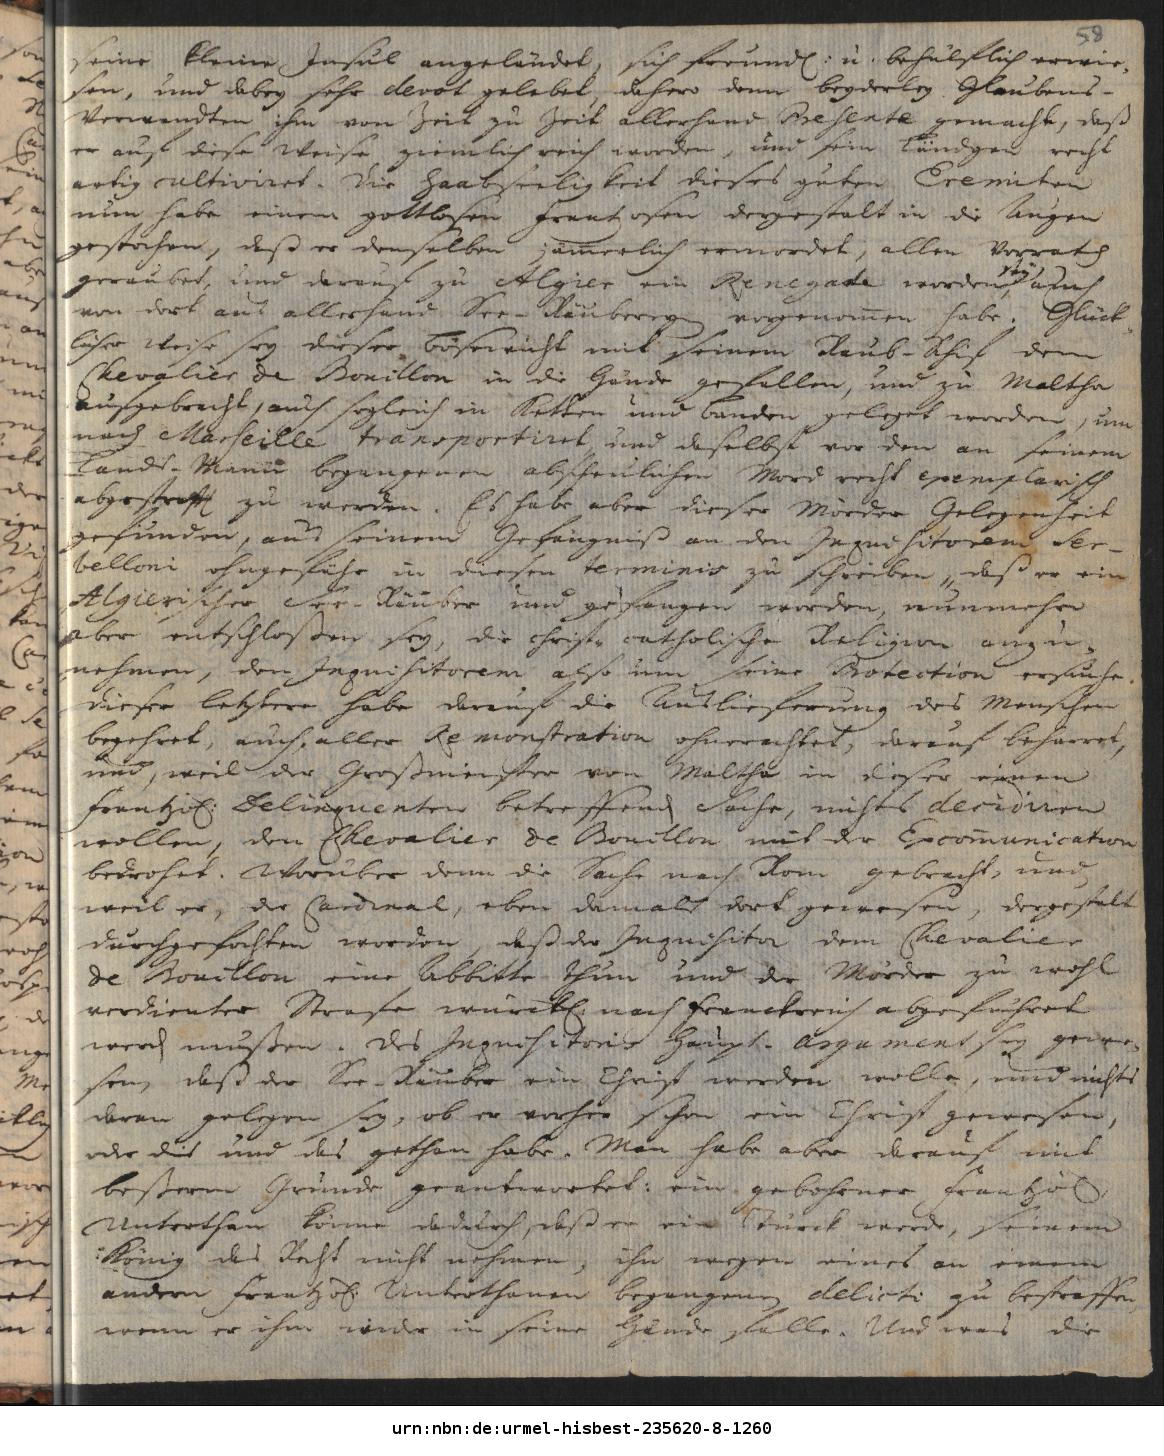 58
seine kleine Insul angeländet, sich freundl: u. behülfflich erwie-
sen, und dabey sehr devot gelebet, dahero denn beyderley Glaubens-
Verwandten ihm von Zeit zu Zeit allerhand Presente gemacht, daß
er auf diese Weise ziemlich reich worden, und sein Ländgen recht
artig cultiviret. Die Haabseeligkeit dieses guten Eremiten
nun habe einem gottlosen Frantzosen dergestalt in die Augen
gestochen, daß er denselben jämerlich ermordet, allen Vorrath
geraubet, und darauf zu Algier ein Renegate worden sey, auch
von dort aus allerhand See-Räubereyen vorgenomen habe. Glück-
licher Weise sey dieser Bösewicht mit seinem Raub-Schif dem
Chevalier de Bouillon in die Hände gefallen, und zu Maltha
aufgebracht, auch sogleich in Ketten und Banden geleget worden, um
nach Marseille transportiret, und daselbst vor den an seinem
Lands-Mann begangenen abscheulichen Mord recht exemplarisch
abgestrafft zu werden. Es habe aber dieser Mörder Gelegenheit
gefunden, aus seinem Gefängniß an den Inquisitorem Ser-
belloni ohngefähr in diesen terminis zu schreiben, daß er ein
Algierischer See-Räuber und gefangen worden, nunmehro
aber entschloßen sey, die christ- catholische Religion anzu-
nehmen, den Inquisitorem also um seine Protection ersuche.
dieser letztere habe darauf die Auslieferung des Menschen
begehret, auch, aller Remonstration ohnerachtet, darauf beharret,
und, weil der Großmeister von Maltha in dieser einen
Frantzös: Delinquenten betreffend Sache, nichts decidiren
wollen, den Chevalier de Bouillon mit der Excomunication
bedrohet. Worüber denn die Sache nach Rom gebracht, und,
weil er, der Cardinal, eben damals dort gewesen, dergestalt
durchgefochten worden, daß der Inquisitor dem Chevalier
de Bouillon eine Abbitte thun und der Mörder zu wohl
verdienter Strafe würckl: nach Franckreich abgeführet
werd müßen. Des Inquisitoris Haupt-Argument sey gewe-
sen, daß der See-Räuber ein Christ werden wolle, und nichts
daran gelegen sey, ob er vorher schon ein Christ gewesen,
oder dis und das gethan habe. Man habe aber darauf mit
beßerm Grunde geantwortet: ein gebohrner Frantzös:
Unterthan könne dadurch, daß er ein Türck werde, seinem
König das Recht nicht nehmen, ihn wegen eines an einem
andern Frantzös: Unterthanen begangenen delicti zu bestraffen,
wenn er ihm wider in seine Hände falle. Und was die
urn:nbn:de:urmel-hisbest-235620-8-1260